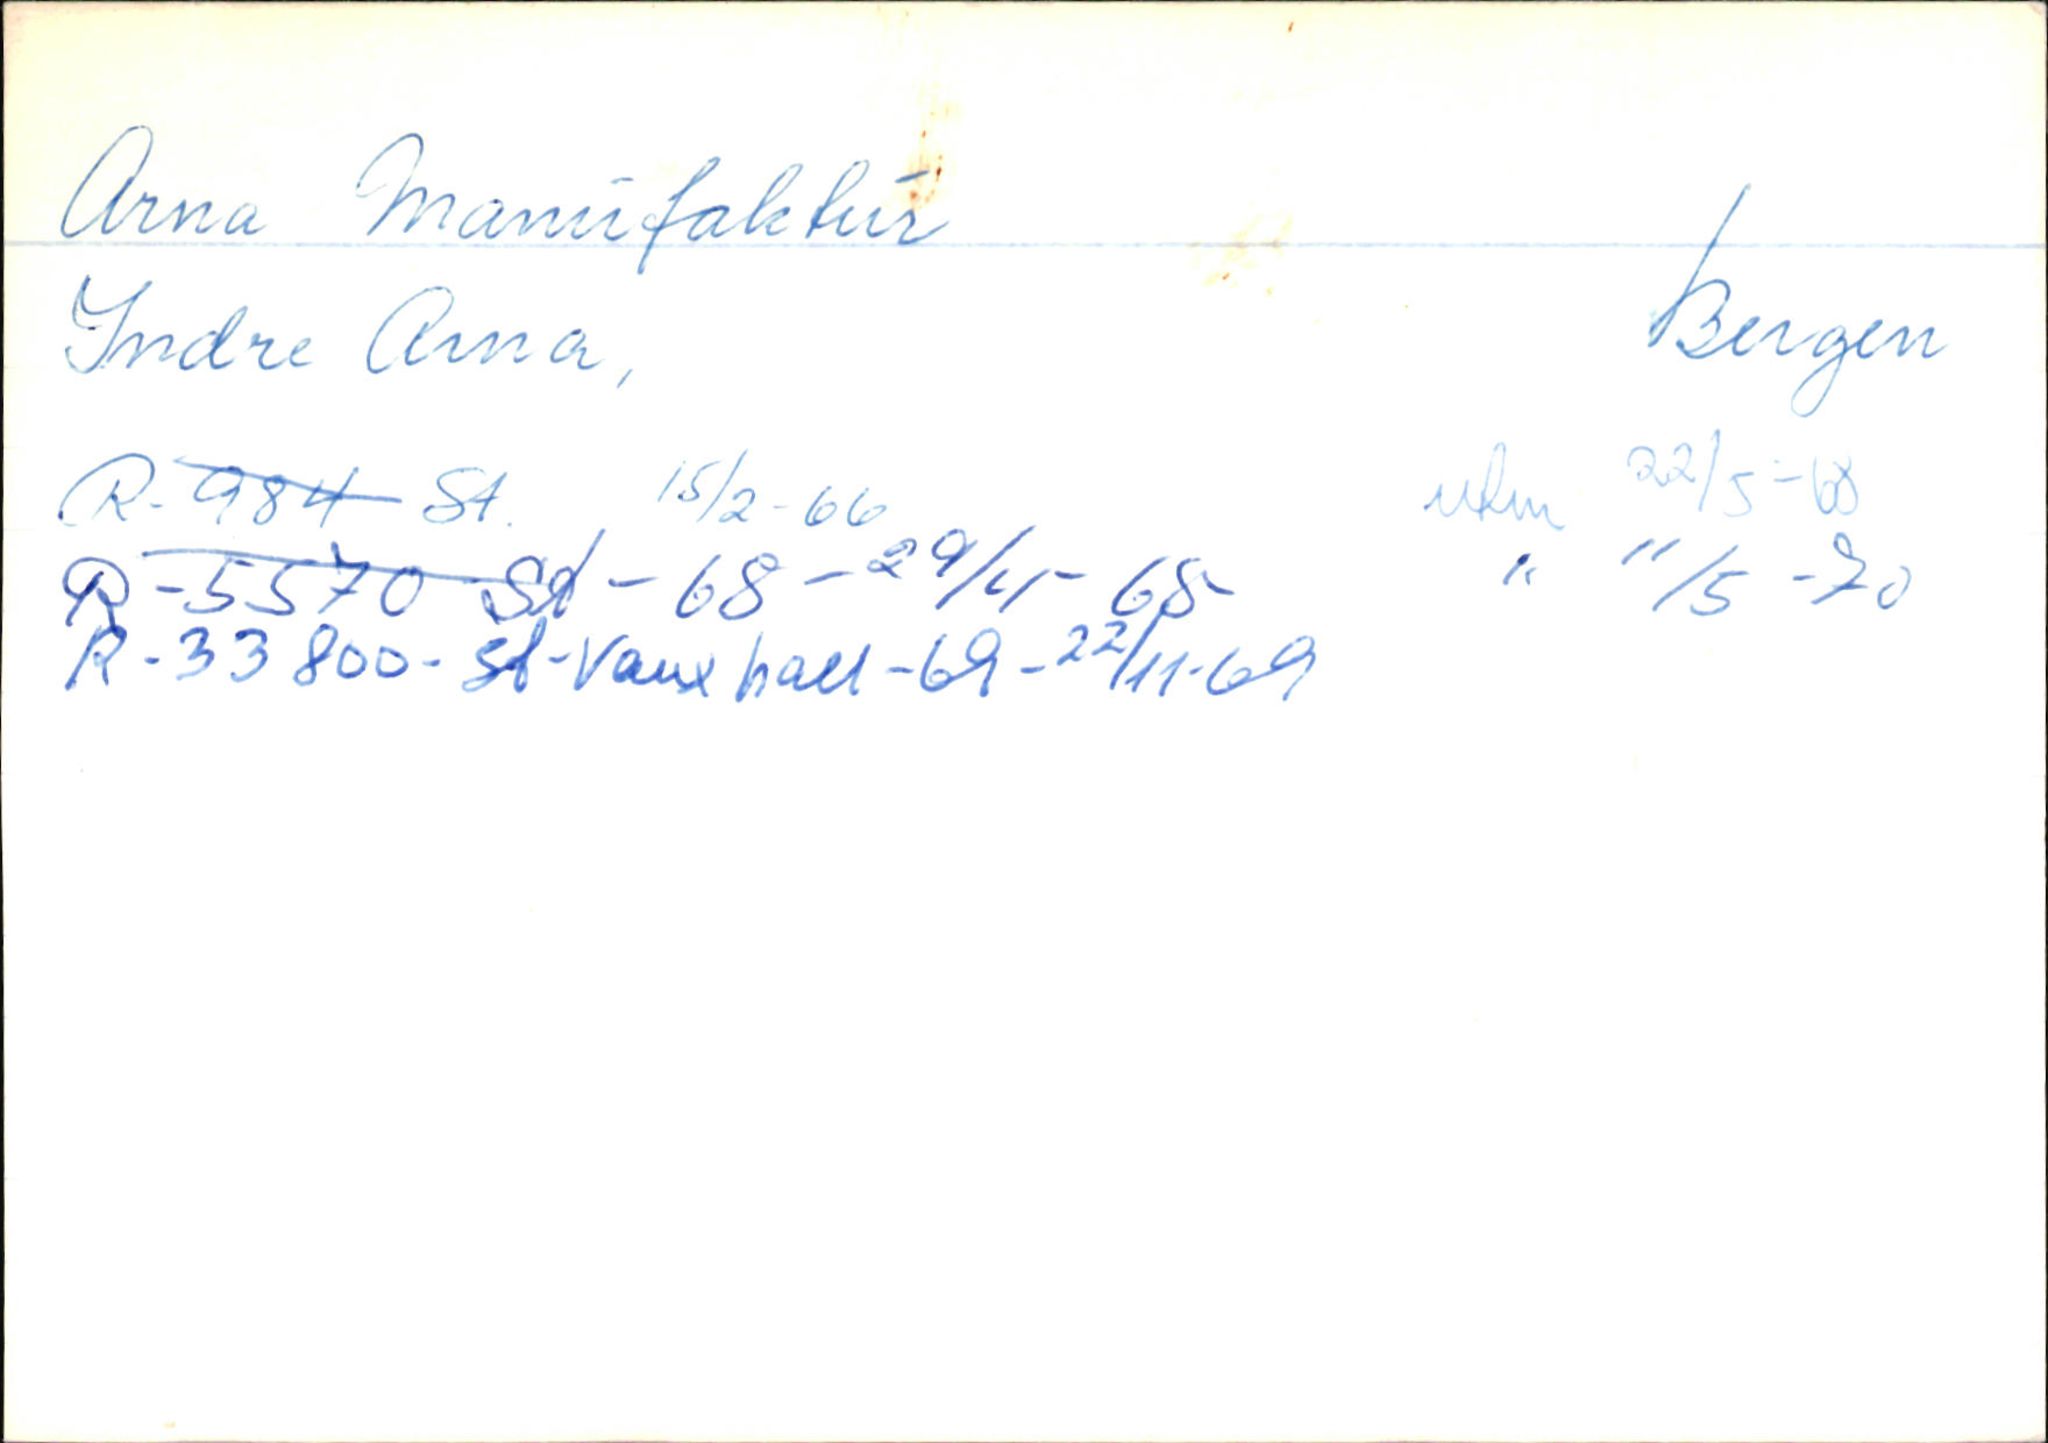 Arna Manufaktur
Indre Arna, Bergen
R-984 St. 15/2-66 utm 22/5-68
R-5570 St-68-29/4-68 " 11/5-70
R-33800-St-Vauxhall-69-22/11-69